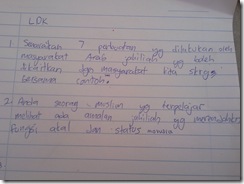 LDK
1. Senaraikan 7 perbuatan yg dilakukan oleh
masyarakat Arab jahiliah yg boleh
dikaitkan dgn masyarakat kita skrg
bersama contoh.
2. Anda seorang muslim yg terpelajar
melihat ada amalan jahiliah yg merendahkan
fungsi akal dan status manusia